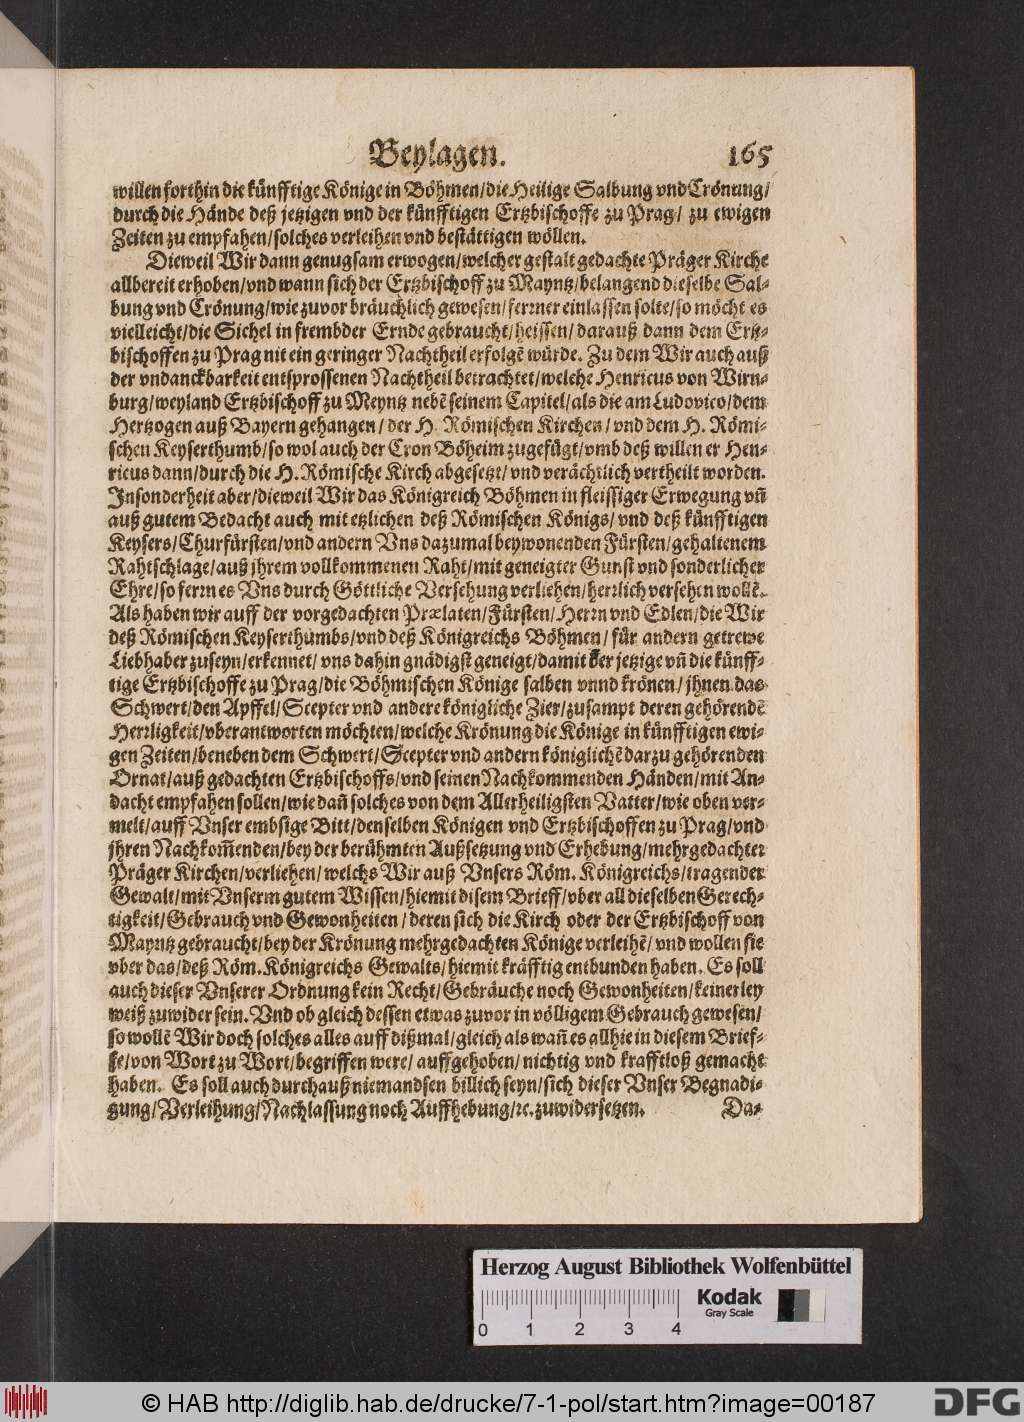 Beylagen. 165
willen forthin die künfftige Könige in Böhmen/die Heilige Salbung vnd Crönung/
durch die Hände deß jetzigen vnd der künfftigen Ertzbischoffe zu Prag/ zu ewigen
Zeiten zu empfahen/solches verleihen vnd bestättigen wöllen.
Dieweil Wir dann genugsam erwogen/welcher gestalt gedachte Präger Kirche
allbereit erhoben/vnd wann sich der Ertzbischoff zu Mayntz/belangend dieselbe Sal-
bung vnd Crönung/wie zuvor bräuchlich gewesen/ferrner einlassen solte/so möcht es
vielleicht/die Sichel in frembder Ernde gebraucht/heissen/ darauß dann dem Ertz-
bischoffen zu Prag nit ein geringer Nachtheil erfolgē würde. Zu dem Wir auch auß
der vndanckbarkeit entsprossenen Nachtheil betrachtet/welche Henricus von Wirn-
burg/weyland Ertzbischoff zu Meyntz nebē seinem Capitel/als die am Ludovico/dem
Hertzogen auß Bayern gehangen/ der H. Römischen Kirchen/ vnd dem H. Römi-
schen Keyserthumb/so wol auch der Cron Böheim zugefügt/vmb deß willen er Hen-
ricus dann/durch die H. Römische Kirch abgesetzt/ vnd verächtlich vertheilt worden.
Insonderheit aber/dieweil Wir das Königreich Böhmen in fleissiger Erwegung vn̄
auß gutem Bedacht auch mit etzlichen deß Römischen Königs/ vnd deß künfftigen
Keysers/Churfürsten/vnd andern Vns dazumal beywonenden Fürsten/gehaltenem
Rahtschlage/auß jhrem vollkommenen Raht/mit geneigter Gunst vnd sonderlicher
Ehre/so ferrn es Vns durch Göttliche Versehung verliehen/herrlich versehen wollē.
Als haben wir auff der vorgedachten Prælaten/Fürsten/Herrn vnd Edlen/die Wir
deß Römischen Keyserthumbs/vnd deß Königreichs Böhmen/ für andern getrewe
Liebhaber zuseyn/erkennet/ vns dahin gnädigst geneigt/damit der jetzige vn̄ die künff-
tige Ertzbischoffe zu Prag/die Böhmischen Könige salben vnnd krönen/ jhnen das
Schwert/den Apffel/Scepter vnd andere königliche Zier/zusampt deren gehörendē
Herrligkeit/vberantworten möchten/welche Krönung die Könige in künfftigen ewi-
gen Zeiten/beneben dem Schwert/Scepter vnd andern königlichē darzu gehörenden
Ornat/auß gedachten Ertzbischoffs/vnd seinen Nachkommenden Händen/mit An-
dacht empfahen sollen/wie dan̄ solches von dem Allerheiligsten Vatter/wie oben ver-
melt/auff Vnser embsige Bitt/denselben Königen vnd Ertzbischoffen zu Prag/vnd
jhren Nachkom̄enden/bey der berühmten Außsetzung vnd Erhebung/mehrgedachter
Präger Kirchen/verliehen/welchs Wir auß Vnsers Röm. Königreichs/tragender
Gewalt/mit Vnserm gutem Wissen/hiemit disem Brieff/vber all dieselben Gerech-
tigkeit/Gebrauch vnd Gewonheiten/ deren sich die Kirch oder der Ertzbischoff von
Mayntz gebraucht/bey der Krönung mehrgedachten Könige verleihē/ vnd wollen sie
vber das/deß Röm. Königreichs Gewalts/hiemit kräfftig entbunden haben. Es soll
auch dieser Vnserer Ordnung kein Recht/Gebräuche noch Gewonheiten/keinerley
weiß zuwider sein. Vnd ob gleich dessen etwas zuvor in völligem Gebrauch gewesen/
so wollē Wir doch solches alles auff dißmal/gleich als wan̄ es allhie in diesem Brief-
fe/von Wort zu Wort/begriffen were/ auffgehoben/nichtig vnd krafftloß gemacht
haben. Es soll auch durchauß niemandsen billich seyn/sich dieser Vnser Begnadi-
gung/Verleihung/Nachlassung noch Auffhebung/ꝛc. zuwidersetzen. Da-
Herzog August Bibliothek Wolfenbüttel
Kodak
Gray Scale
0 1 2 3 4
© HAB http://diglib.hab.de/drucke/7-1-pol/start.htm?image=00187
DFG